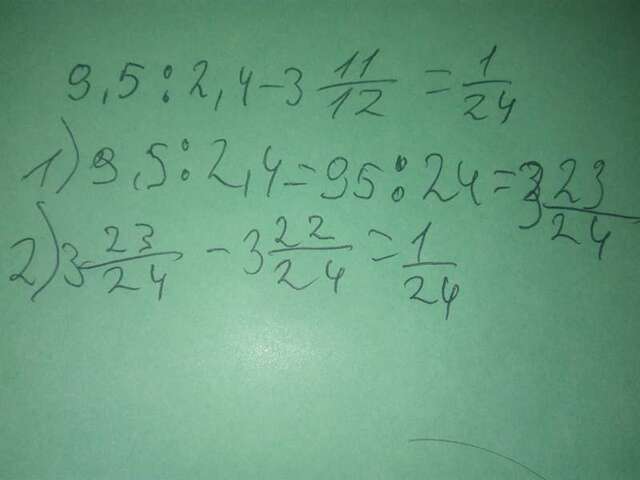 9,5:2,4-3 11/12 = 1/24
1) 9,5:2,4=95:24=3 23/24
2) 3 23/24 - 3 22/24 = 1/24